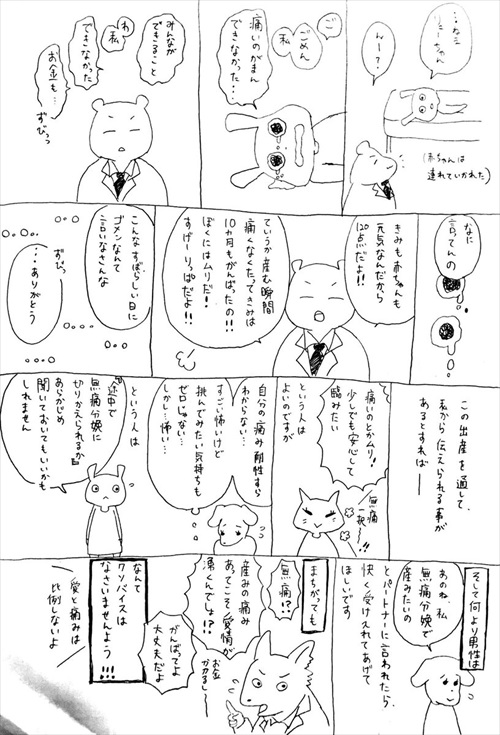 …ねぇ
りーちゃん
んー？
(赤ちゃんは
連れていかれた)
ご
ごめん
私
痛いのがまん
できなかった…
みんなが
できること
わ
私
できなかった
お金も…
ずびっ
なに
言ってんの
きみも赤ちゃんも
元気なんだから
120点だよ!!
ていうか産む瞬間
痛くなくたってきみは
10ヵ月もがんばったの!!
ぼくにはムリだ!
すげーりっぱだよ!!
こんなすばらしい日に
ゴメンなんて
言いなさんな
ずびっ
…ありがとう
この出産を通して、
私から伝えられる事が
あるとすれば—
痛いのとかムリ!!
少しでも安心して
臨みたい
という人は
よいのですが
無痛
一択〜!!
自分の痛み耐性すら
わからない…
すごい怖いけど
挑んでみたい気持ちも
ゼロじゃない…
しかし…怖い…
という人は
"途中で
無痛分娩に
切りかえられるか"
あらかじめ
聞いておいてもいいかも
しれません
そして何より男性は
あのね、私
無痛分娩で
産みたいの
とパートナーに言われたら、
快く受け入れてあげて
ほしいです
まちがっても
無痛!?
産みの痛み
あってこそ愛情が
湧くんでしょ!?
お金
かかるし〜
がんばってよ
大丈夫だよ
なんて
クソバイスは
なさいませんよう!!!
愛と痛みは
比例しないよ